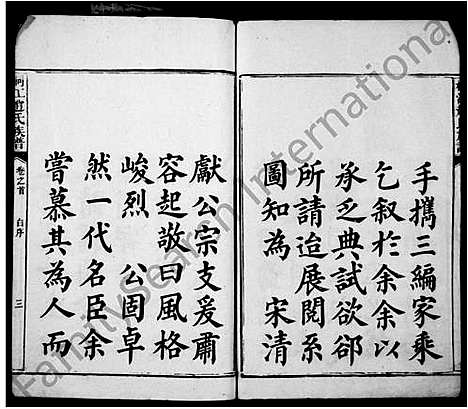 手攜三編家乘
乞叙於余余以
承乏典試欲卻
所請迨展閱系
圖知為 宋清
獻公宗支爰肅
容起敬曰風格
峻烈 公固卓
然一代名臣余
嘗慕其為人而
江趙氏族譜
卷之首
白序
三
FamilySearch International